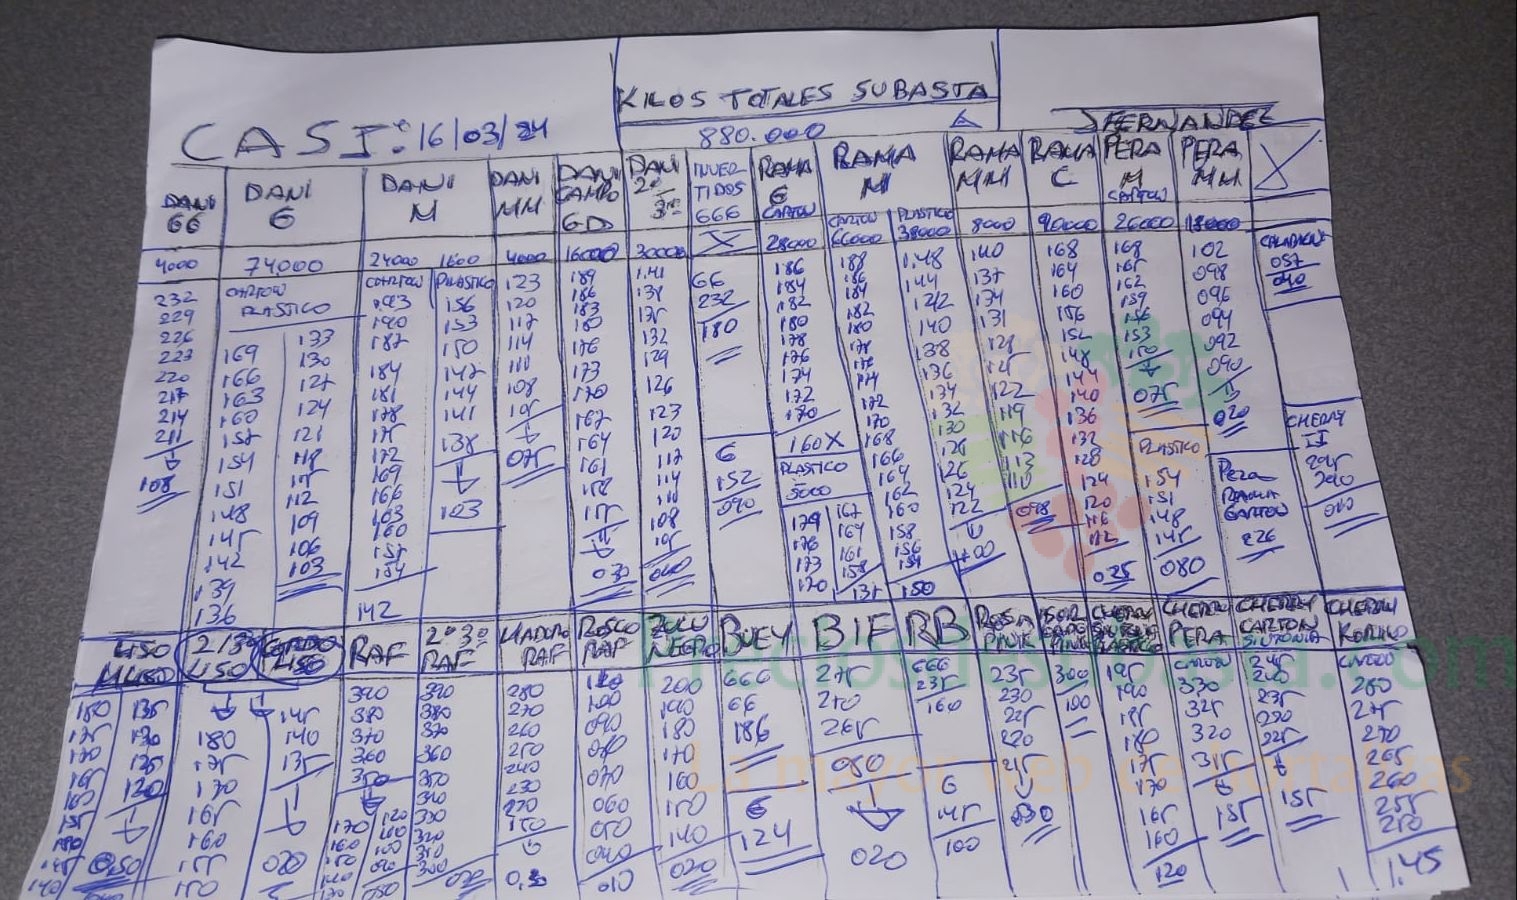 KILOS TOTALES SUBASTA
CASI: 16/03/24
880.000
JFERNANDEZ
DANI GG
DANI G
DANI M
DANI MM
DANI CAMPO GD
DANI 2ª 3ª
INVERTIDOS GGG
RAMA G CARTON
RAMA M
RAMA MM
RAMA C
PERA M CARTON
PERA MM
X
4000
74000
24000
1600
4000
16000
30000
X
28000
CARTON 66000
PLASTICO 38000
8000
90000
26000
18000
CALABACIN
057
040
CARTON
PLASTICO
CARTON
PLASTICO
232
229
226
223
220
217
214
211
108
169
166
163
160
157
154
151
148
145
142
139
136
133
130
127
124
121
118
115
112
109
106
103
193
190
187
184
181
178
175
172
169
166
163
160
157
154
142
156
153
150
147
144
141
138
103
123
120
117
114
111
108
105
075
189
186
183
180
176
173
170
167
164
161
158
155
030
141
138
135
132
129
126
123
120
117
114
111
108
105
040
66
232
180
G
152
090
186
184
182
180
178
176
174
172
170
160X
PLASTICO
5000
179
176
173
170
188
186
184
182
180
178
176
174
172
170
168
166
164
162
160
158
156
154
150
167
164
161
158
135
148
144
142
140
138
136
134
132
130
128
126
124
122
100
140
137
134
131
128
125
122
119
116
113
110
098
168
164
160
156
152
148
144
140
136
132
128
124
120
116
112
168
165
162
159
156
153
150
075
PLASTICO
154
151
148
145
080
025
102
098
096
094
092
090
020
PERA
RAMA
CARTON
226
CHERRY
II
295
290
010
LISO
2/3ª LISO
GORDO LISO
RAF
2ª 3ª RAF
MADURO RAF
ROSCO RAF
ZOCO NEGRO
BUEY
BIF
RB
ROSA PINK
CHERRY PERA
CHERRY CARTON SINTONIA
CHERRY KOMINO
180
175
170
165
160
155
150
145
140
135
130
125
120
050
180
175
170
165
160
155
150
145
140
135
020
390
380
370
360
350
170
160
150
140
130
120
110
100
090
050
390
380
370
360
350
340
330
320
310
300
020
280
270
260
250
240
230
150
100
090
080
070
060
050
040
010
200
190
180
170
160
150
140
020
GGG
GG
186
G
124
275
270
265
050
020
GGG
235
160
G
145
100
235
230
225
220
215
030
300
100
195
190
185
180
175
170
165
160
120
CARTON
330
325
320
315
155
245
240
235
230
225
155
CARTON
280
275
270
265
260
255
250
1.45
Preciosdesubasta.com
La mayor web de hortalizas